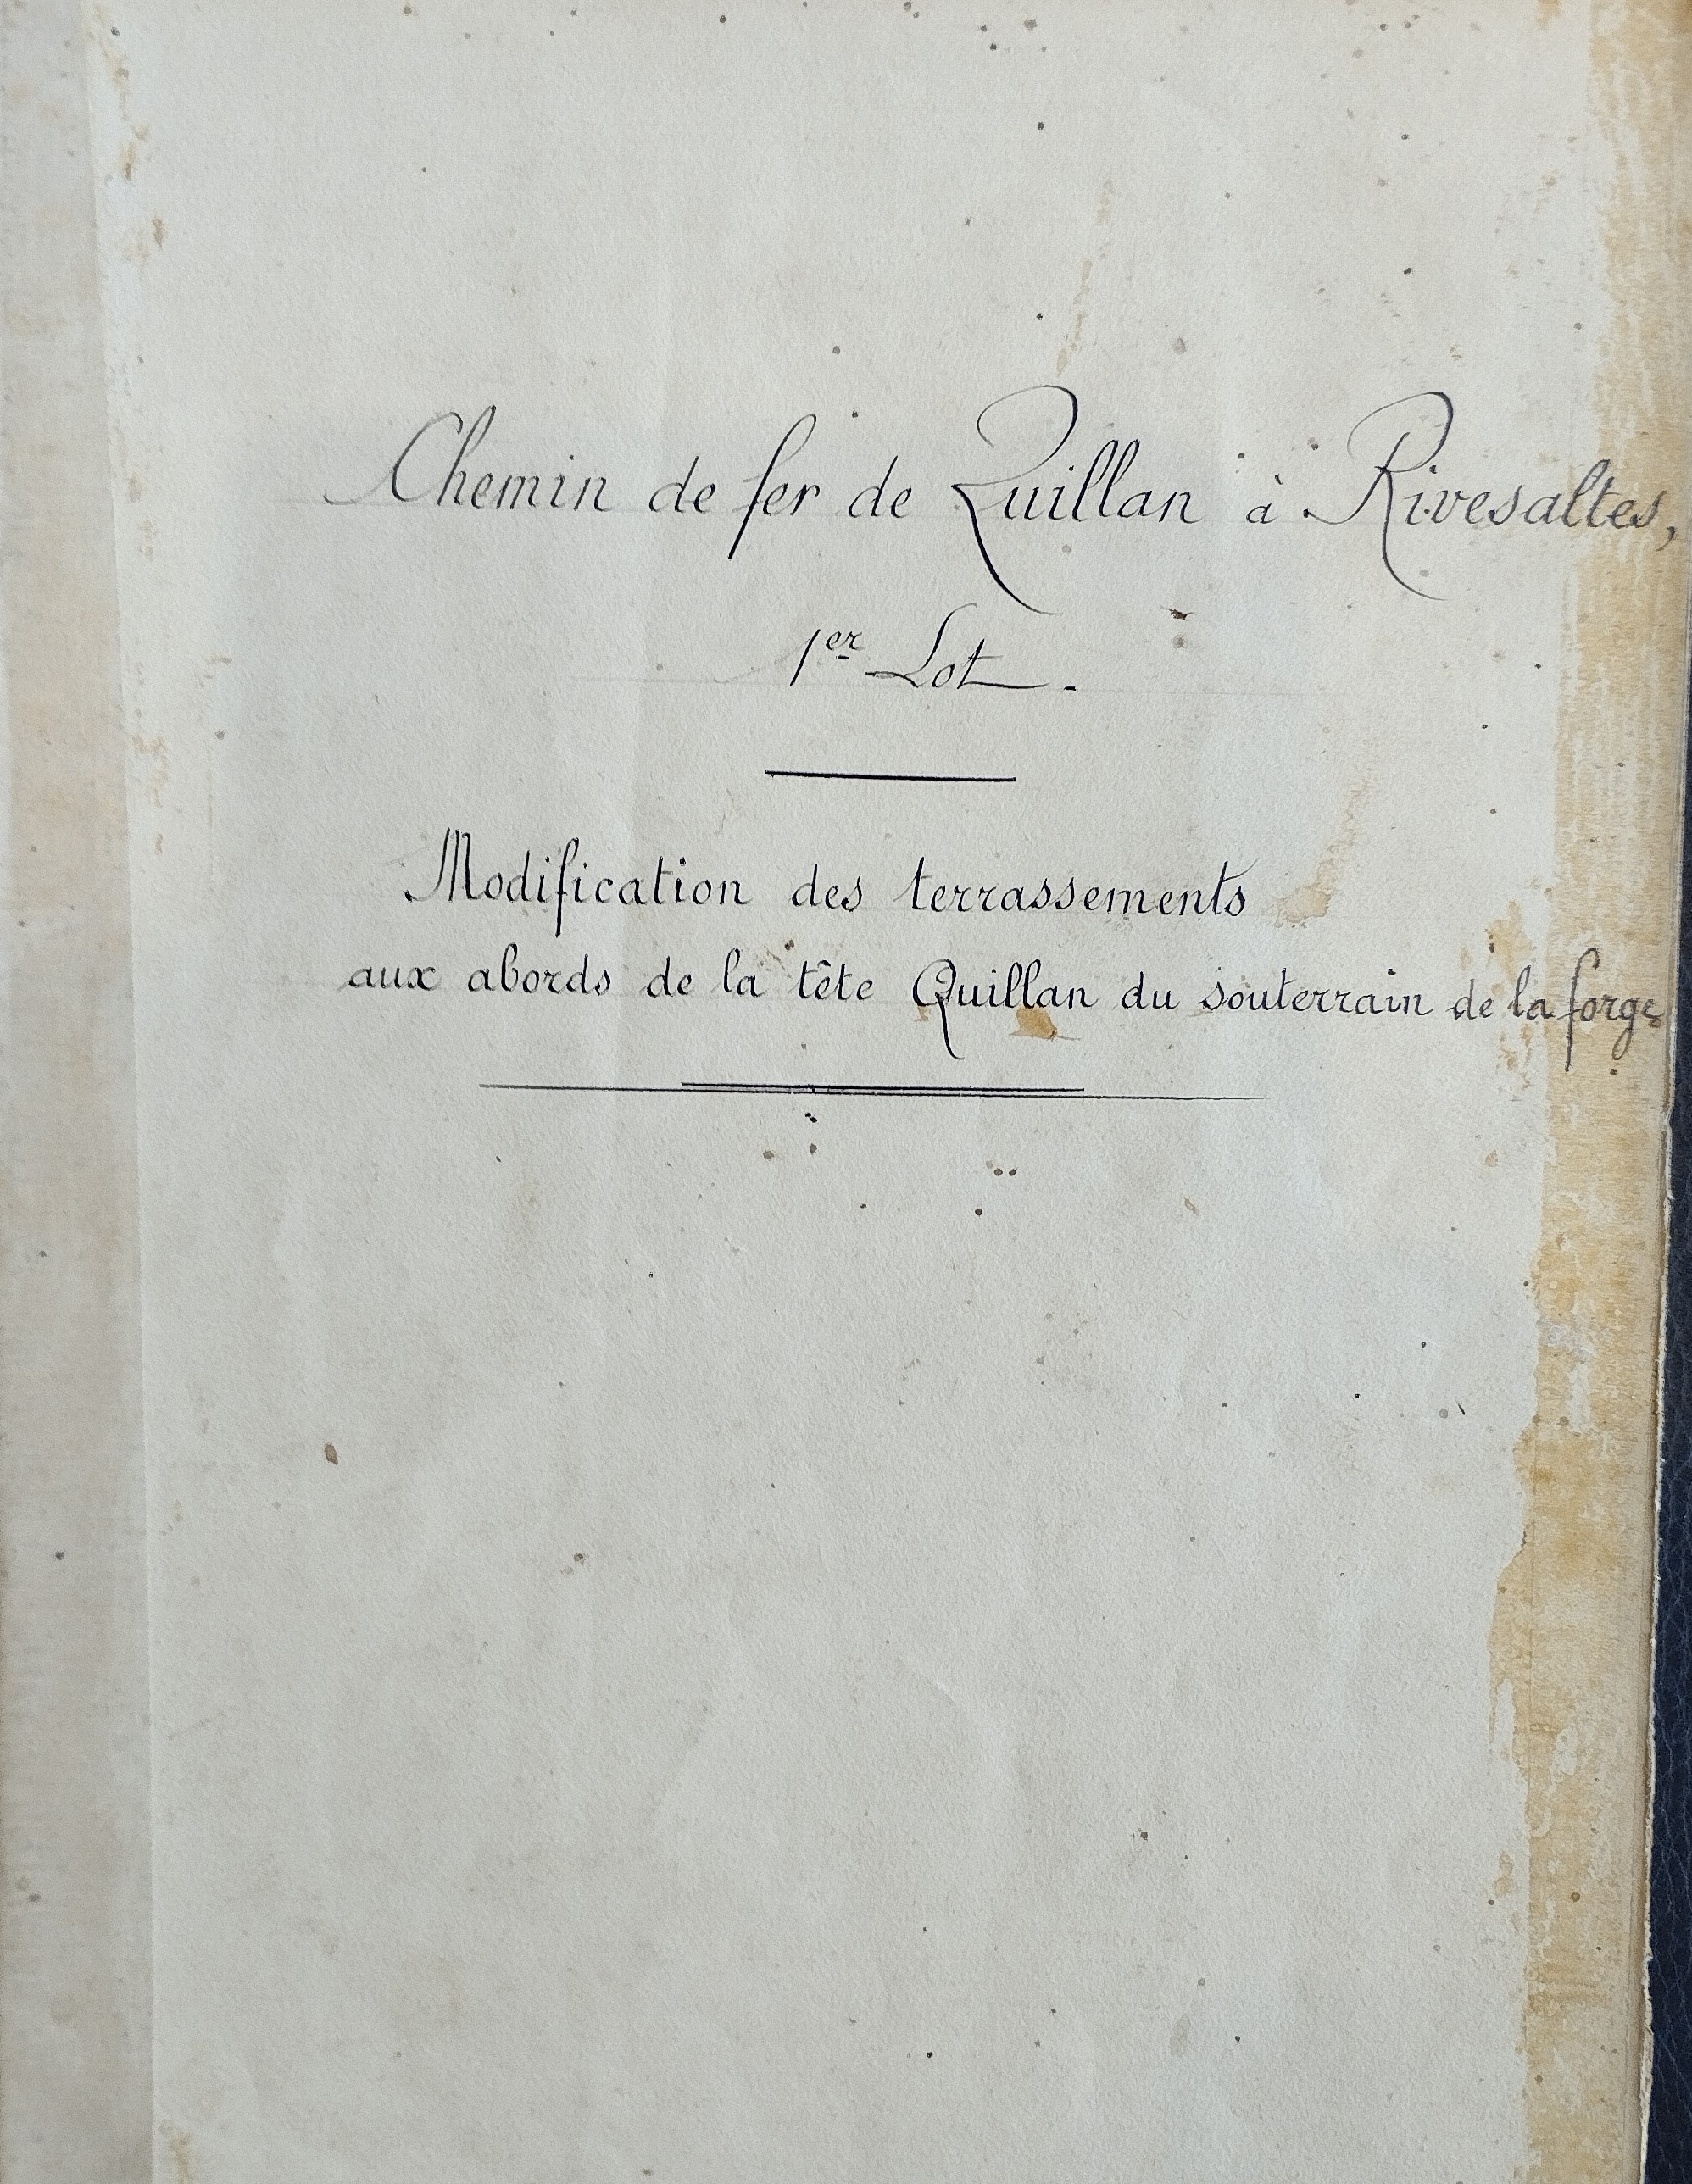 Chemin de fer de Quillan à Rivesaltes,
1er Lot.
Modification des terrassements
aux abords de la tête Quillan du souterrain de la forge